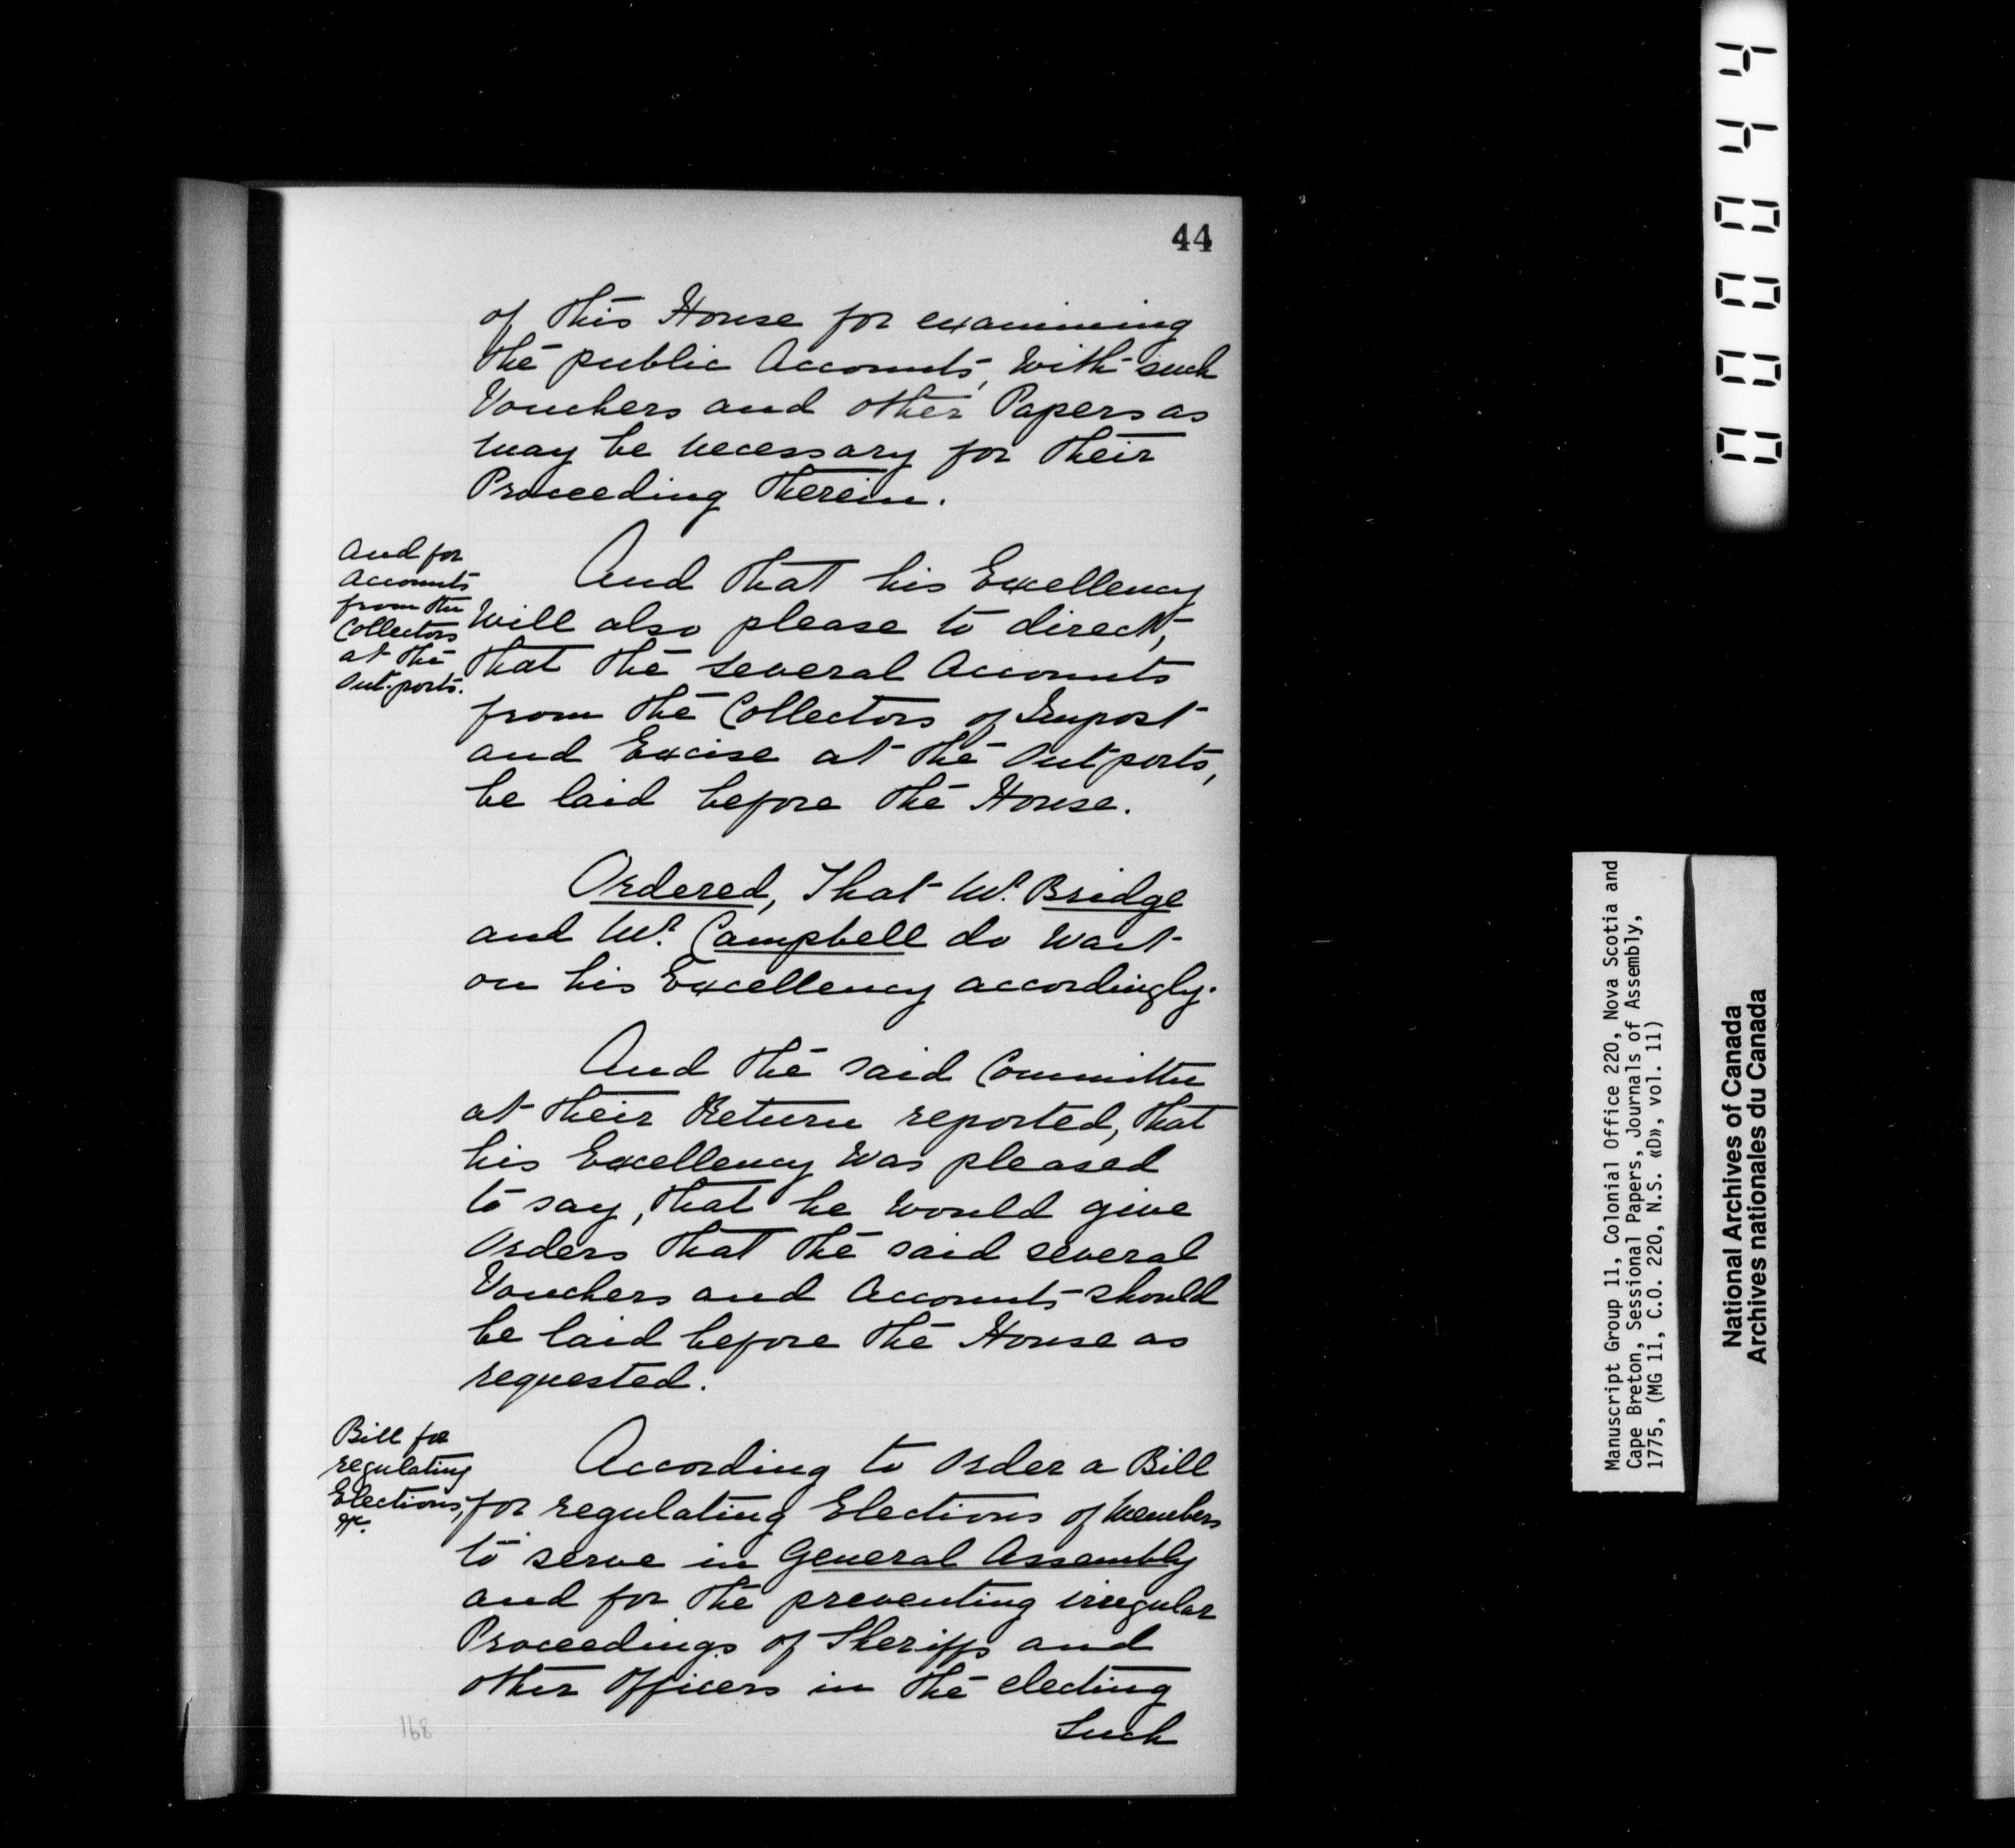 44
of this House for examining
the public Accounts, with such
Vouchers and other Papers as
may be necessary for their
Proceeding therein.
And for
Accounts
from the
Collectors
at the
Out-ports.
And that his Excellency
will also please to direct,
that the several Accounts
from the Collectors of Impost
and Excise at the Outports,
be laid before the House.
Ordered, That Mr. Bridge
and Mr. Campbell do wait
on his Excellency accordingly.
And the said Committee
at their Return reported, that
his Excellency was pleased
to say, that he would give
Orders that the said several
Vouchers and Accounts should
be laid before the House as
requested.
Bill for
regulating
Elections,
&c.
According to order a Bill
for regulating Elections of Members
to serve in General Assembly
and for the preventing irregular
Proceedings of Sheriffs and
other Officers in the electing
Such
168
000044
Manuscript Group 11, Colonial Office 220, Nova Scotia and
Cape Breton, Sessional Papers, Journals of Assembly,
1775, (MG 11, C.O. 220, N.S. «D», vol. 11)
National Archives of Canada
Archives nationales du Canada